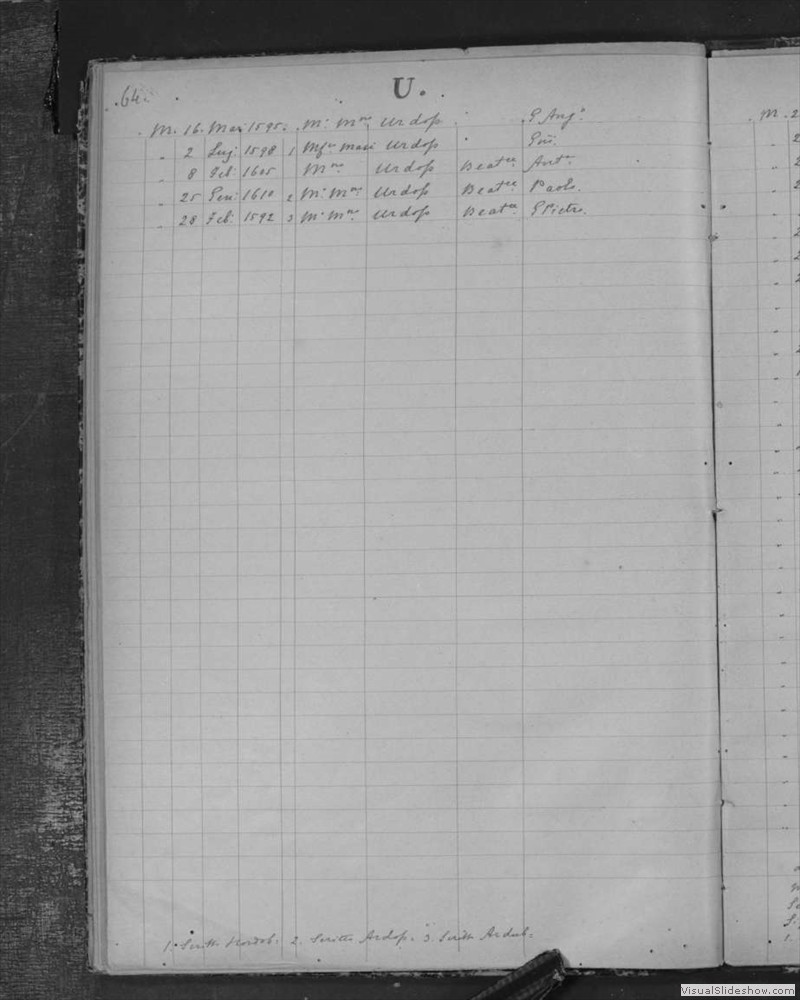 64.
U.
M. 16. Mar. 1595. Mr. Mne Urdoß G Ang.o
" 2 Lug. 1598 1 Mga Mari Urdoß " Gui.
" 8 1605 Mne Urdoß Beatce Anto
" 25 Gen. 1610 2 Mr. Mne Urdoß Beatce Paolo.
" 28 Feb. 1592 3 Mr. Mne Urdoß Beatce GPietro.
1. Scritto 2. Scritto Ardop. 3. Scritto Ardub.
M. 2
VisualSlideshow.com